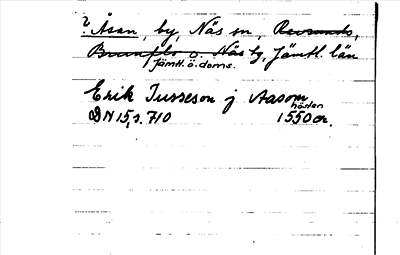 ? Åsan, by, Näs sn, Revsunds,
Brunflo o. Näs tg, Jämtl. län
Jämtl. ö. doms.
Erik Tusseson j Aasom
hösten
DN 15, s. 710 1550 or.